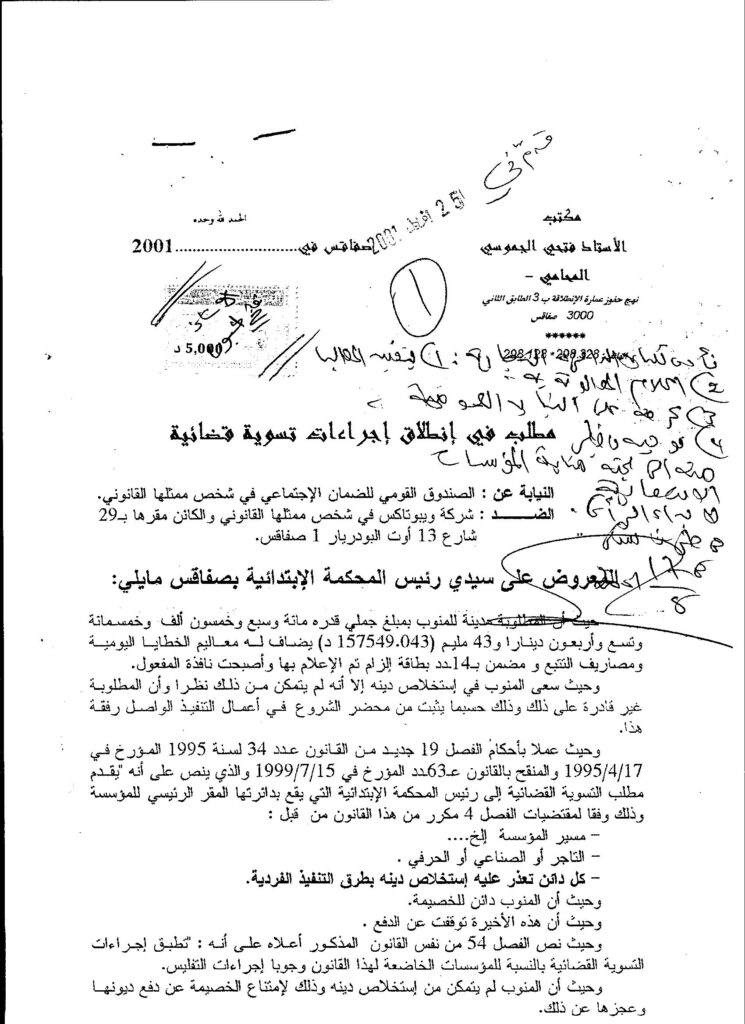 قدم في
25 افريل 2001
الحمد لله وحده
مكتب
صفاقس في..............................2001
الأستاذ فتحي الجموسي
- المحامي -
نهج حفوز عمارة الإنطلاقة ب 3 الطابق الثاني
3000 صفاقس
******
5,000 د
1
298.328 - 298.128
مطلب في إنطلاق إجراءات تسوية قضائية
النيابة عن : الصندوق القومي للضمان الإجتماعي في شخص ممثلها القانوني.
الضــد : شركة ويبوتاكس في شخص ممثلها القانوني والكائن مقرها بـ29
شارع 13 أوت البودريار 1 صفاقس.
المعروض على سيدي رئيس المحكمة الإبتدائية بصفاقس مايلي:
حيث أن المطلوبة مدينة للمنوب بمبلغ جملي قدره مائة وسبع وخمسون ألف وخمسمائة
وتسع وأربعون دينارا و43 مليم (157549.043 د) يضاف له معاليم الخطايا اليومية
ومصاريف التتبع و مضمن بـ14دد بطاقة إلزام تم الإعلام بها وأصبحت نافذة المفعول.
وحيث سعى المنوب في إستخلاص دينه إلا أنه لم يتمكن من ذلك نظرا وأن المطلوبة
غير قادرة على ذلك وذلك حسبما يثبت من محضر الشروع في أعمال التنفيذ الواصل رفقة
هذا.
وحيث عملا بأحكام الفصل 19 جديد من القانون عدد 34 لسنة 1995 المؤرخ في
1995/4/17 والمنقح بالقانون عـ63دد المؤرخ في 1999/7/15 والذي ينص على أنه "يقدم
مطلب التسوية القضائية إلى رئيس المحكمة الإبتدائية التي يقع بدائرتها المقر الرئيسي للمؤسسة
وذلك وفقا لمقتضيات الفصل 4 مكرر من هذا القانون من قبل :
– مسير المؤسسة إلخ....
– التاجر أو الصناعي أو الحرفي .
– كل دائن تعذر عليه إستخلاص دينه بطرق التنفيذ الفردية.
وحيث أن المنوب دائن للخصيمة.
وحيث أن هذه الأخيرة توقفت عن الدفع .
وحيث نص الفصل 54 من نفس القانون المذكور أعلاه على أنه : "تطبق إجراءات
التسوية القضائية بالنسبة للمؤسسات الخاضعة لهذا القانون وجوبا إجراءات التفليس.
وحيث أن المنوب لم يتمكن من إستخلاص دينه وذلك لإمتناع الخصيمة عن دفع ديونها
وعجزها عن ذلك.